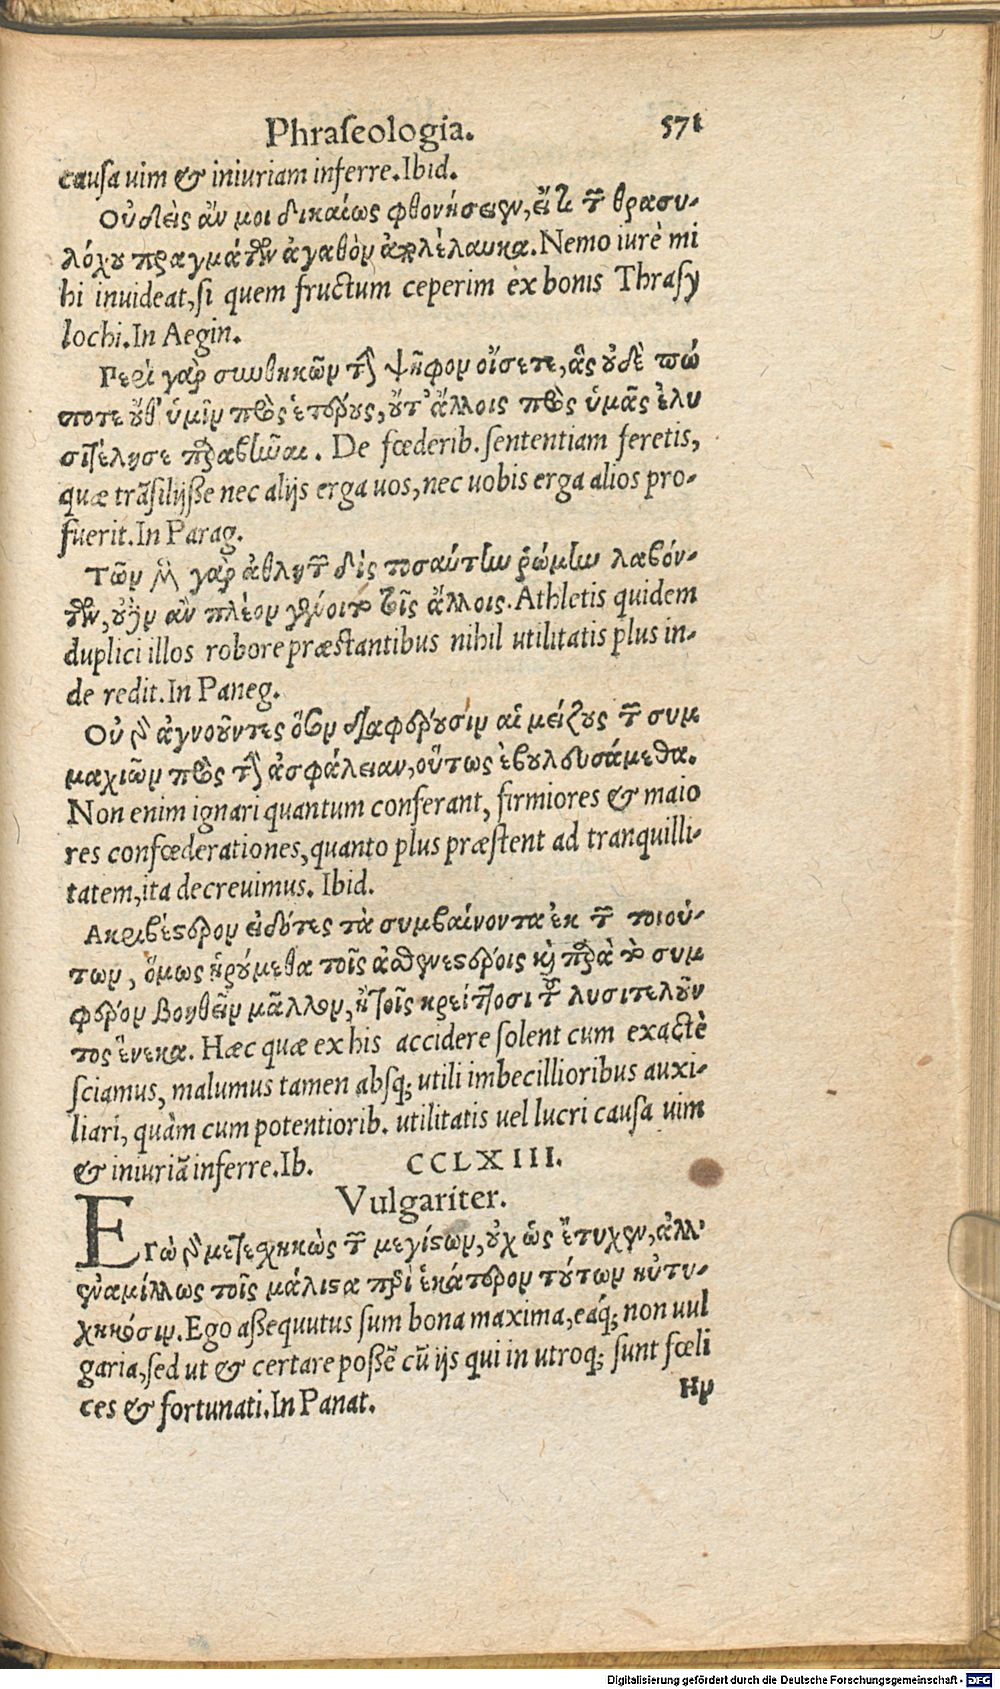 Phraſeologia. 571
cauſa uim & iniuriam inferre. Ibid.
Οὐδεὶς ἄν μοι δικαίως φθονήσειεν, εἴ τι τῶν θρασυ-
λόχου πραγμάτων ἀγαθὸν ἀπολέλαυκα. Nemo iurè mi
hi inuideat, ſi quem fructum ceperim èx bonis Thraſy
lochi. In Aegin.
Περὶ γὰρ συνθηκῶν τὴν ψῆφον οἴσετε, ἃς οὐδὲ πώ
ποτε οὔθ' ὑμῖν πρὸς ἑτέρους, οὔτ' ἄλλοις πρὸς ὑμᾶς ἐλυ
σιτέλησε παραβῶναι. De fœderib. ſententiam feretis,
quæ trãſilijſſe nec alijs erga uos, nec uobis erga alios pro-
fuerit. In Parag.
Τῶν μὲν γὰρ ἀθλητῶν δὶς τοσαύτην ῥώμην λαβόν-
των, οὐδὲν ἂν πλέον γένοιτο τοῖς ἄλλοις. Athletis quidem
duplici illos robore præſtantibus nihil utilitatis plus in-
de redit. In Paneg.
Οὐ δὲ ἀγνοοῦντες ὅσον διαφέρουσιν αἱ μείζους τῶν συμ
μαχιῶν πρὸς τὴν ἀσφάλειαν, οὕτως ἐβουλευσάμεθα.
Non enim ignari quantum conferant, firmiores & maio
res confœderationes, quanto plus præſtent ad tranquilli-
tatem, ita decreuimus. Ibid.
Ακριβέστερον εἰδότες τὰ συμβαίνοντα ἐκ τῶν τοιού-
των, ὅμως ᾑρούμεθα τοῖς ἀσθενεστέροις καὶ παρὰ τὸ συμ
φέρον βοηθεῖν μᾶλλον, ἢ τοῖς κρείττοσι τοῦ λυσιτελοῦν
τος ἕνεκα. Hæc quæ ex his accidere ſolent cum exactè
ſciamus, malumus tamen abſq; utili imbecillioribus auxi-
liari, quàm cum potentiorib. utilitatis uel lucri cauſa uim
& iniuriã inferre. Ib. CCLXIII.
Vulgariter.
Εγὼ δὲ μετεσχηκὼς τῶν μεγίστων, οὐχ ὡς ἔτυχεν, ἀλλ'
ἐναμίλλως τοῖς μάλιστα περὶ ἑκάτερον τούτων ηὐτυ-
χηκόσιν. Ego aſſequutus ſum bona maxima, eáq; non uul
garia, ſed ut & certare poſſẽ cũ ijs qui in utroq; ſunt fœli
ces & fortunati. In Panat.
Ην
Digitalisierung gefördert durch die Deutsche Forschungsgemeinschaft - DFG